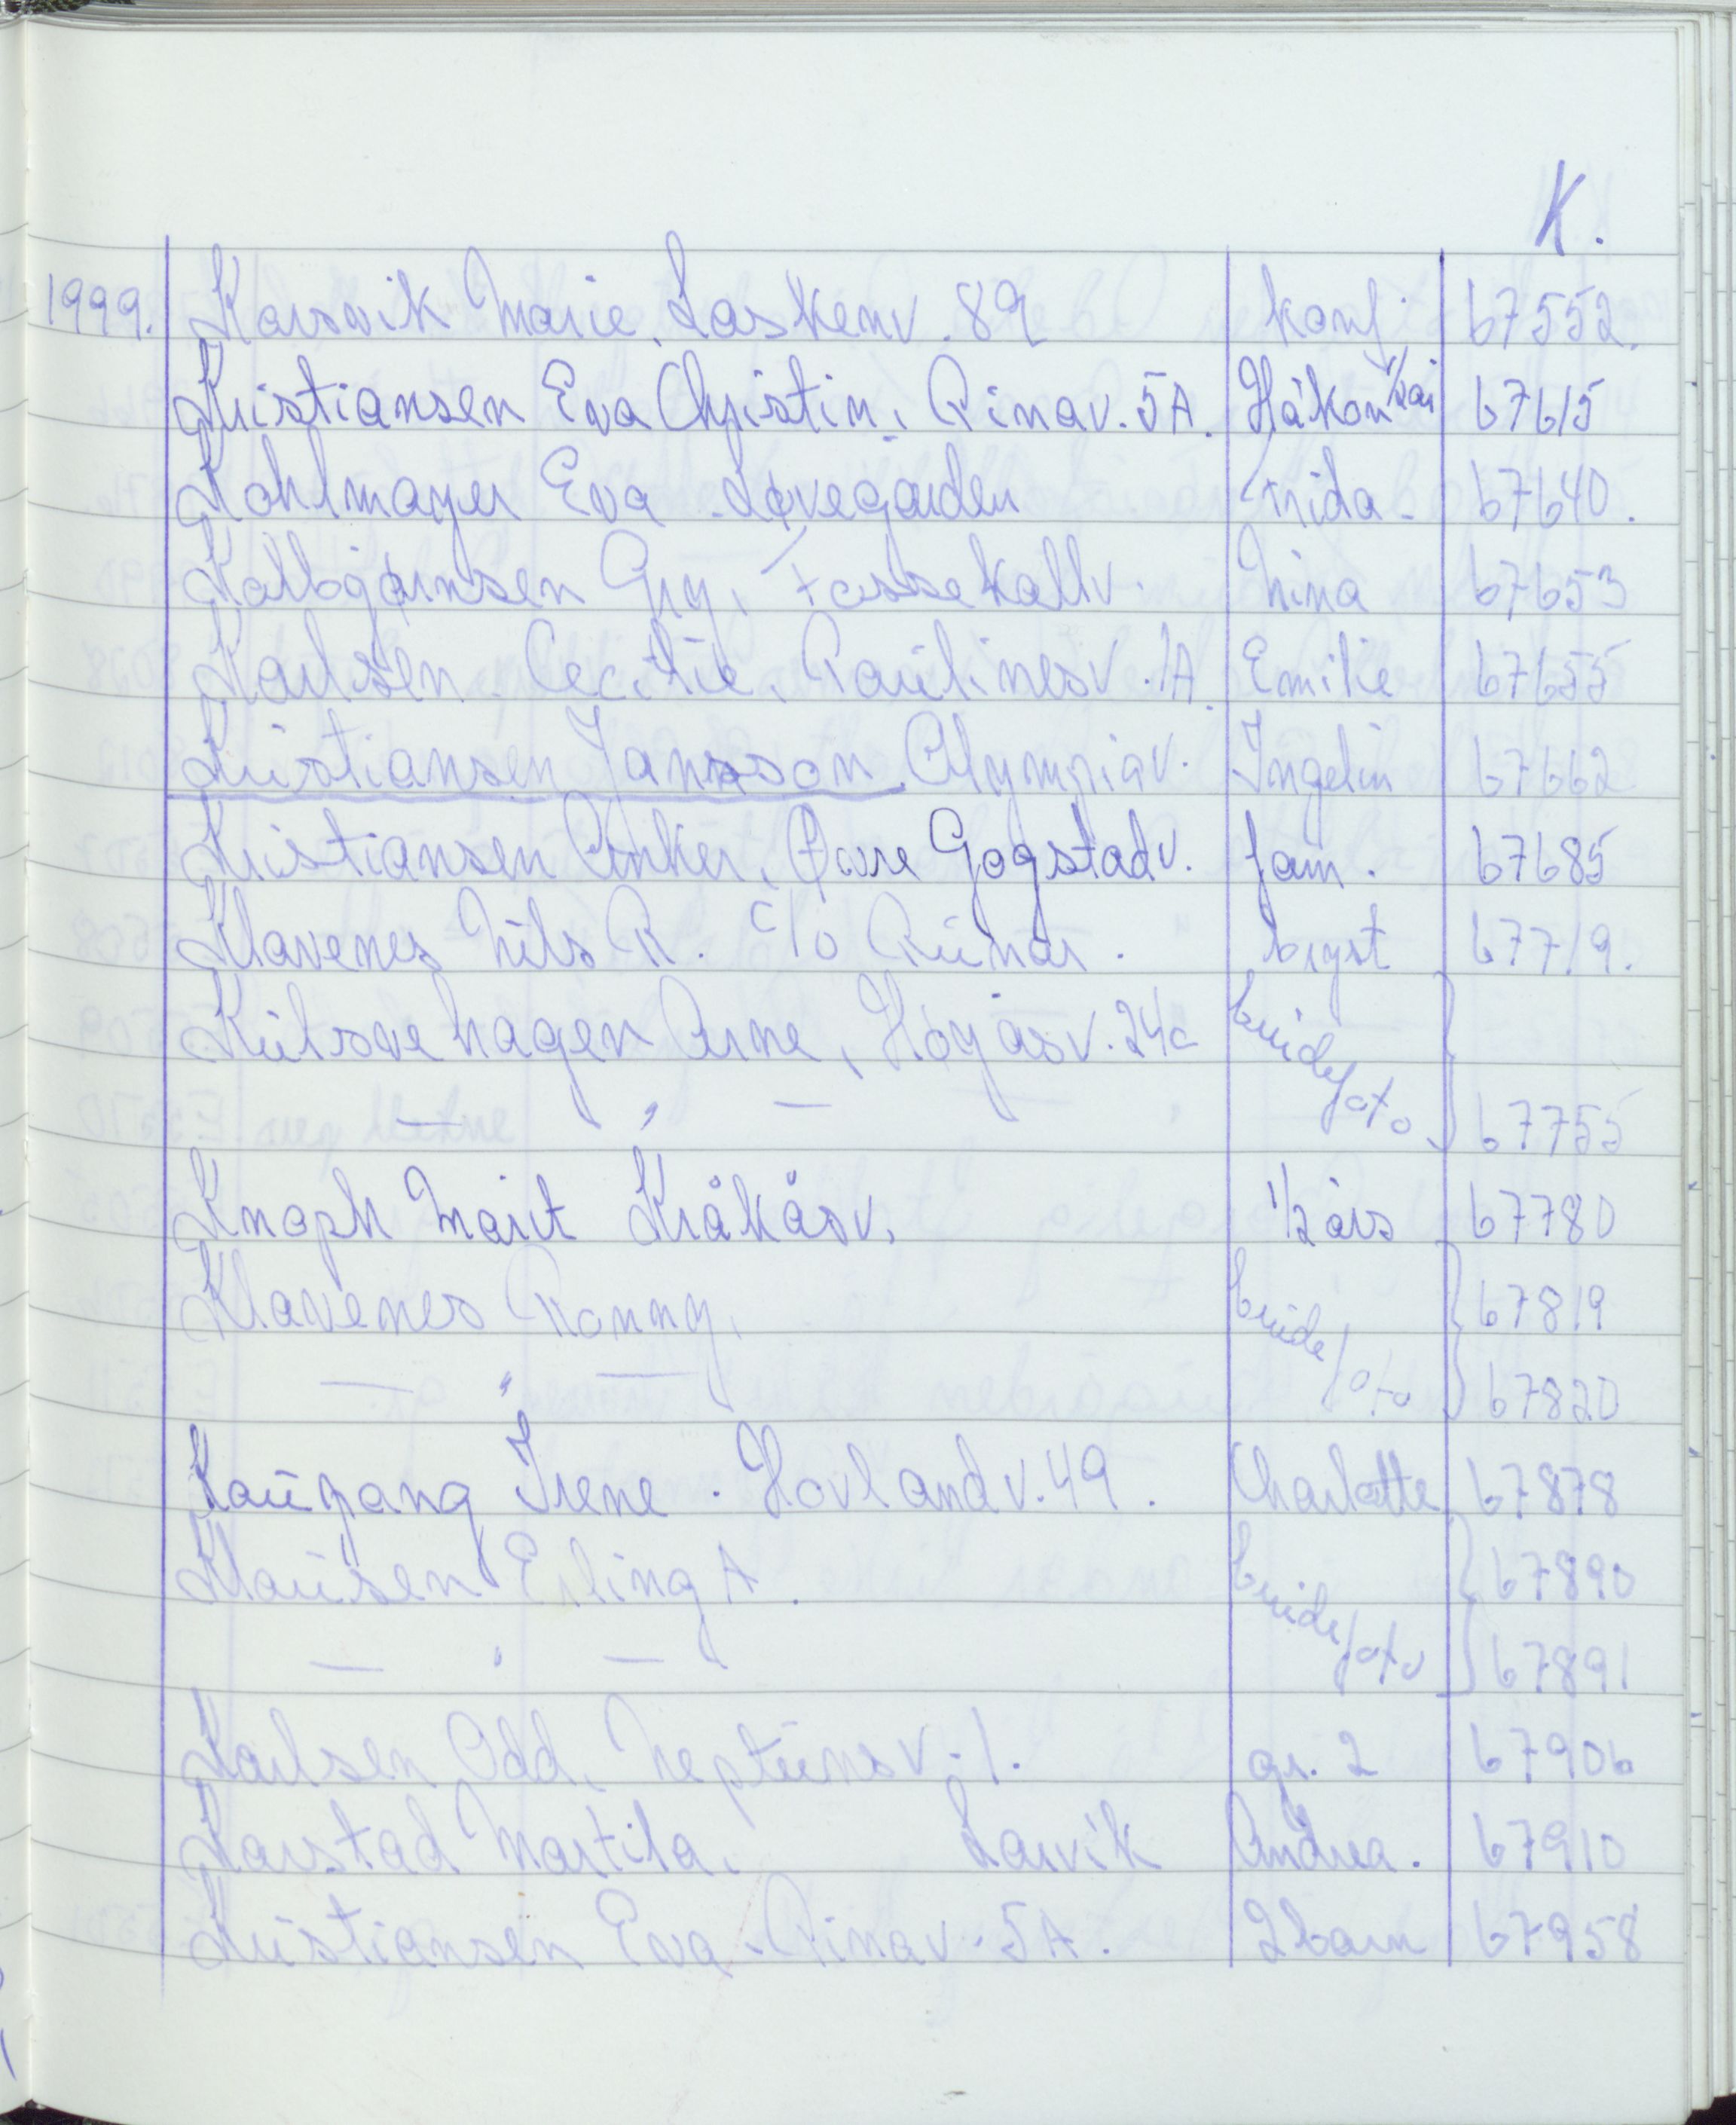 K.
1999. Korsvik Marie, Laskenv. 89 konf. 67552.
Kristiansen Eva Christin, Rinav. 5A. Håkon 1/2 år 67615
Kohlmayer Eva Løvegården Frida 67640.
Kolbjørnsen Gry, Fossekallv. Nina 67653
Karlsen Cecilie, Paulinesv. 1A. Emilie 67655
Kristiansen Jansson Olympiav. Ingelin 67662
Kristiansen Anker, Øvre Gogstadv. fam. 67685
Klavenes Nils R. c/o Runar. bryst 67719.
Arne, Høyåsv. 24c brude
— " — foto 67755
Knoph Marit Kråkåsv. 1/2 års 67780
Klavenes Ronny, brude 67819
— " — foto 67820
Kaupang Irene. Hovlandv. 49. Charlotte 67878
Klausen Erling A. brude 67890
— " — foto 67891
Karlsen Odd, Neptunsv. 1. gr. 2 67906
Karstad Larvik Andrea. 67910
Kristiansen Eva. Rinav. 5A. 2 barn 67958